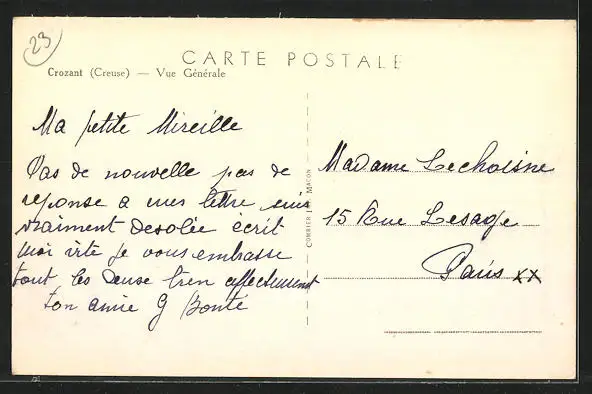 23
CARTE POSTALE
Crozant (Creuse) — Vue Générale
Ma petite Mireille
Pas de nouvelle pas de
reponse a mes lettre suis
vraiment desolée écrit
moi vite je vous embrasse
tout les deuse bien affectument
ton amie G Bonté
COMBIER IMP MACON
Madame Lechoisne
15 Rue Lesage
Paris XX